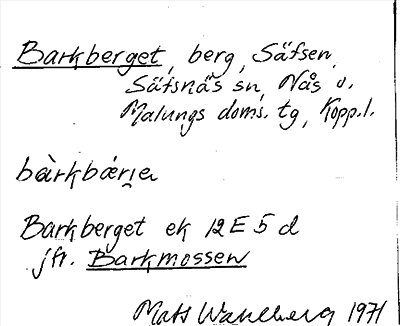 Barkberget, berg, Säfsen,
Säfsnäs sn, Nås o.
Malungs doms. tg, Kopp. l.
bàrkbǽrjɛ
Barkberget ek 12E 5 d
jfr. Barkmossen
Mats Wahlberg 1971